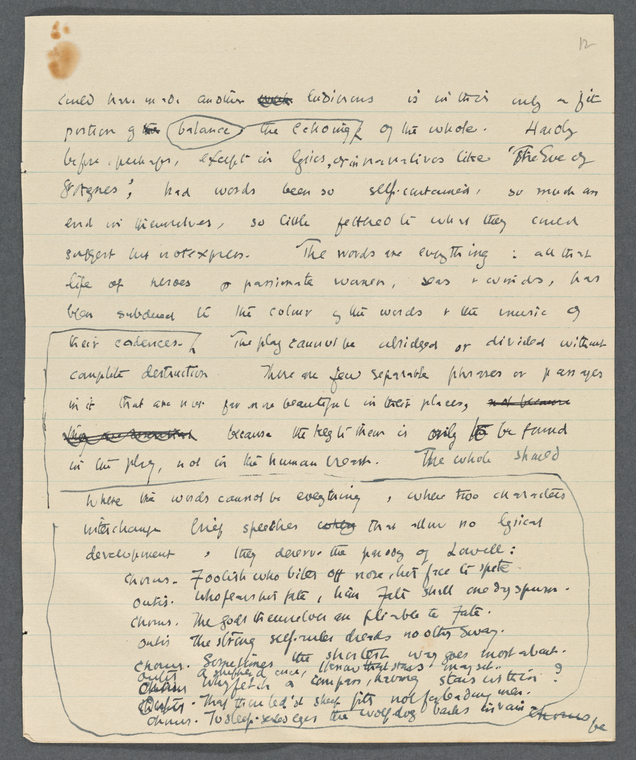 12
could have made another ludicrous is in this only a fit
portion of balance the echoing of the whole. Hardly
before, perhaps, except in lyrics, or in narratives like "The Eve of
St Agnes", had words been so self-contained, so much an
end in themselves, so little fettered to what they could
suggest but not express. The words are everything : all that
life of heroes & passionate women, seas & winds, has
been subdued to the colour of the words & the music of
their cadences. The play cannot be abridged or divided without
complete destruction There are few separable phrases or passages
in it that are not far more beautiful in their places, not because
because the key to them is only to be found
in the play, not in the human breast. The whole should
Where the words cannot be everything , where two characters
interchange brief speeches that allow no lyrical
development , they deserve the parody of Lowell :
Chorus. Foolish who bites off nose, his face to spite.
Outis. Who fears his fate, him Fate shall one day spurn.
Chorus. The gods themselves are pliable to Fate.
Outis The strong self-ruler dreads no other sway.
Chorus. Sometimes the shortest way goes most about.
Outis A shepherd once, I know that stars may set.
Chorus Why fetch a compass, having stars within ?
Outis. That thou led'st sheep fits not for leading men.
Chorus. To sleep-sealed eyes the wolf-dog barks in vain chorus
be